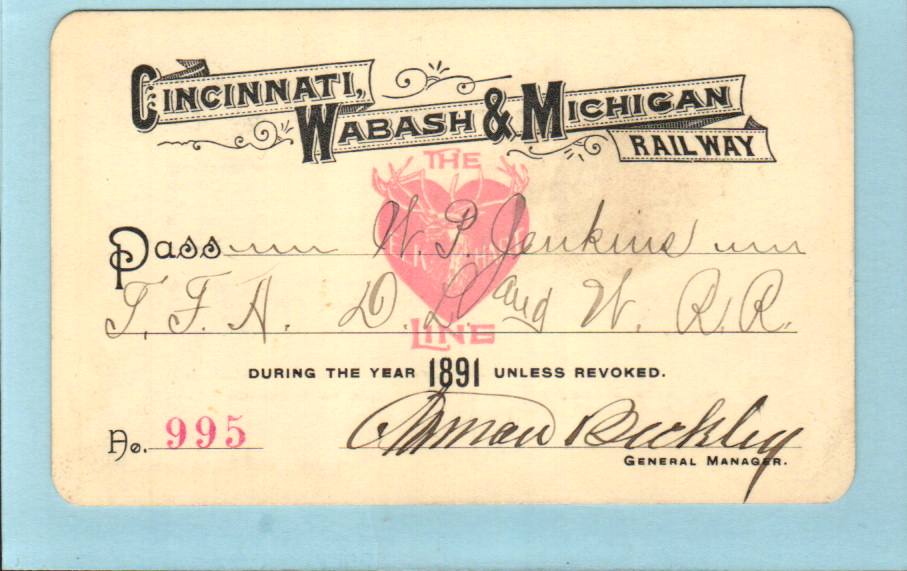 CINCINNATI,
WABASH & MICHIGAN
RAILWAY
THE
Pass W. P. Jenkins
T. F. A. D. L and W. R.R.
LINE
DURING THE YEAR 1891 UNLESS REVOKED.
No. 995
Norman Beckley
GENERAL MANAGER.